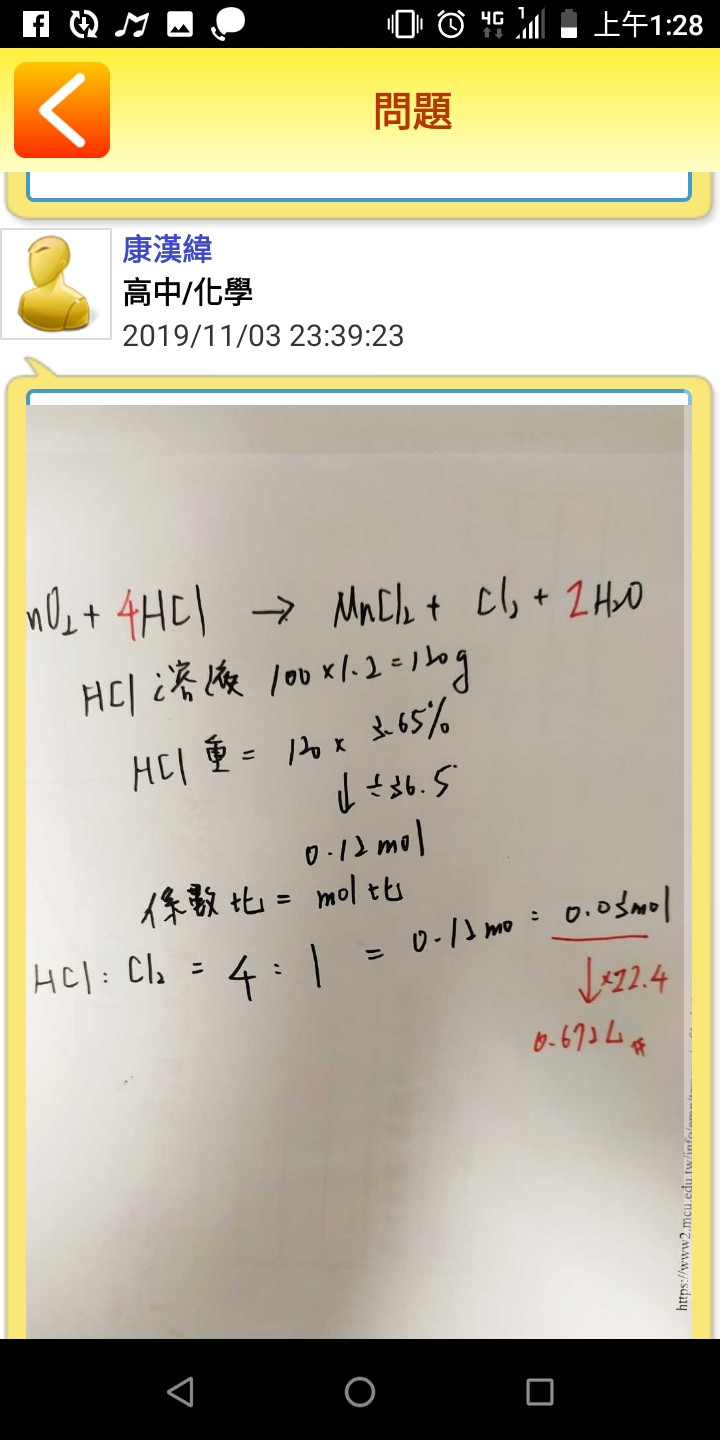 上午1:28
問題
康漢緯
高中/化學
2019/11/03 23:39:23
nO₂ + 4HCl → MnCl₂ + Cl₂ + 2H₂O
HCl 溶液 100 × 1.2 = 120g
HCl 重 = 120 × 3.65%
↓ ÷36.5
0.12 mol
係數比 = mol 比
HCl : Cl₂ = 4 : 1 = 0.12 mo : 0.03mol
↓×22.4
0.672L #